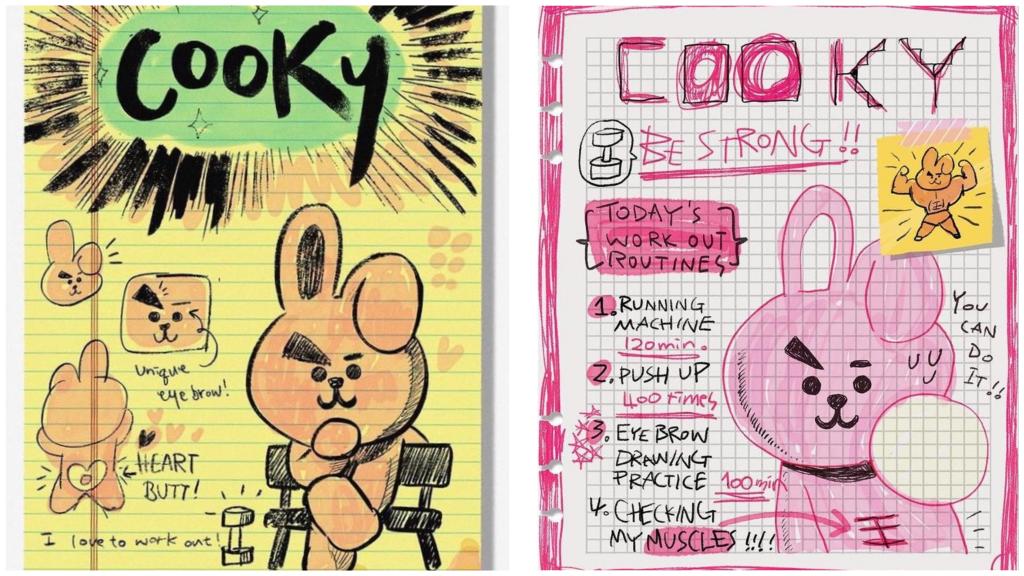 COOKY
unique
eye brow!
HEART
BUTT!
I love to work out!
COOKY
BE STRONG!!
TODAY'S
WORK OUT
ROUTINES
1. RUNNING
MACHINE
120min.
2. PUSH UP
400 times
3. EYE BROW
DRAWING
PRACTICE 100min
4. CHECKING
MY MUSCLES!!!!
YOU
CAN
DO
IT!!
王